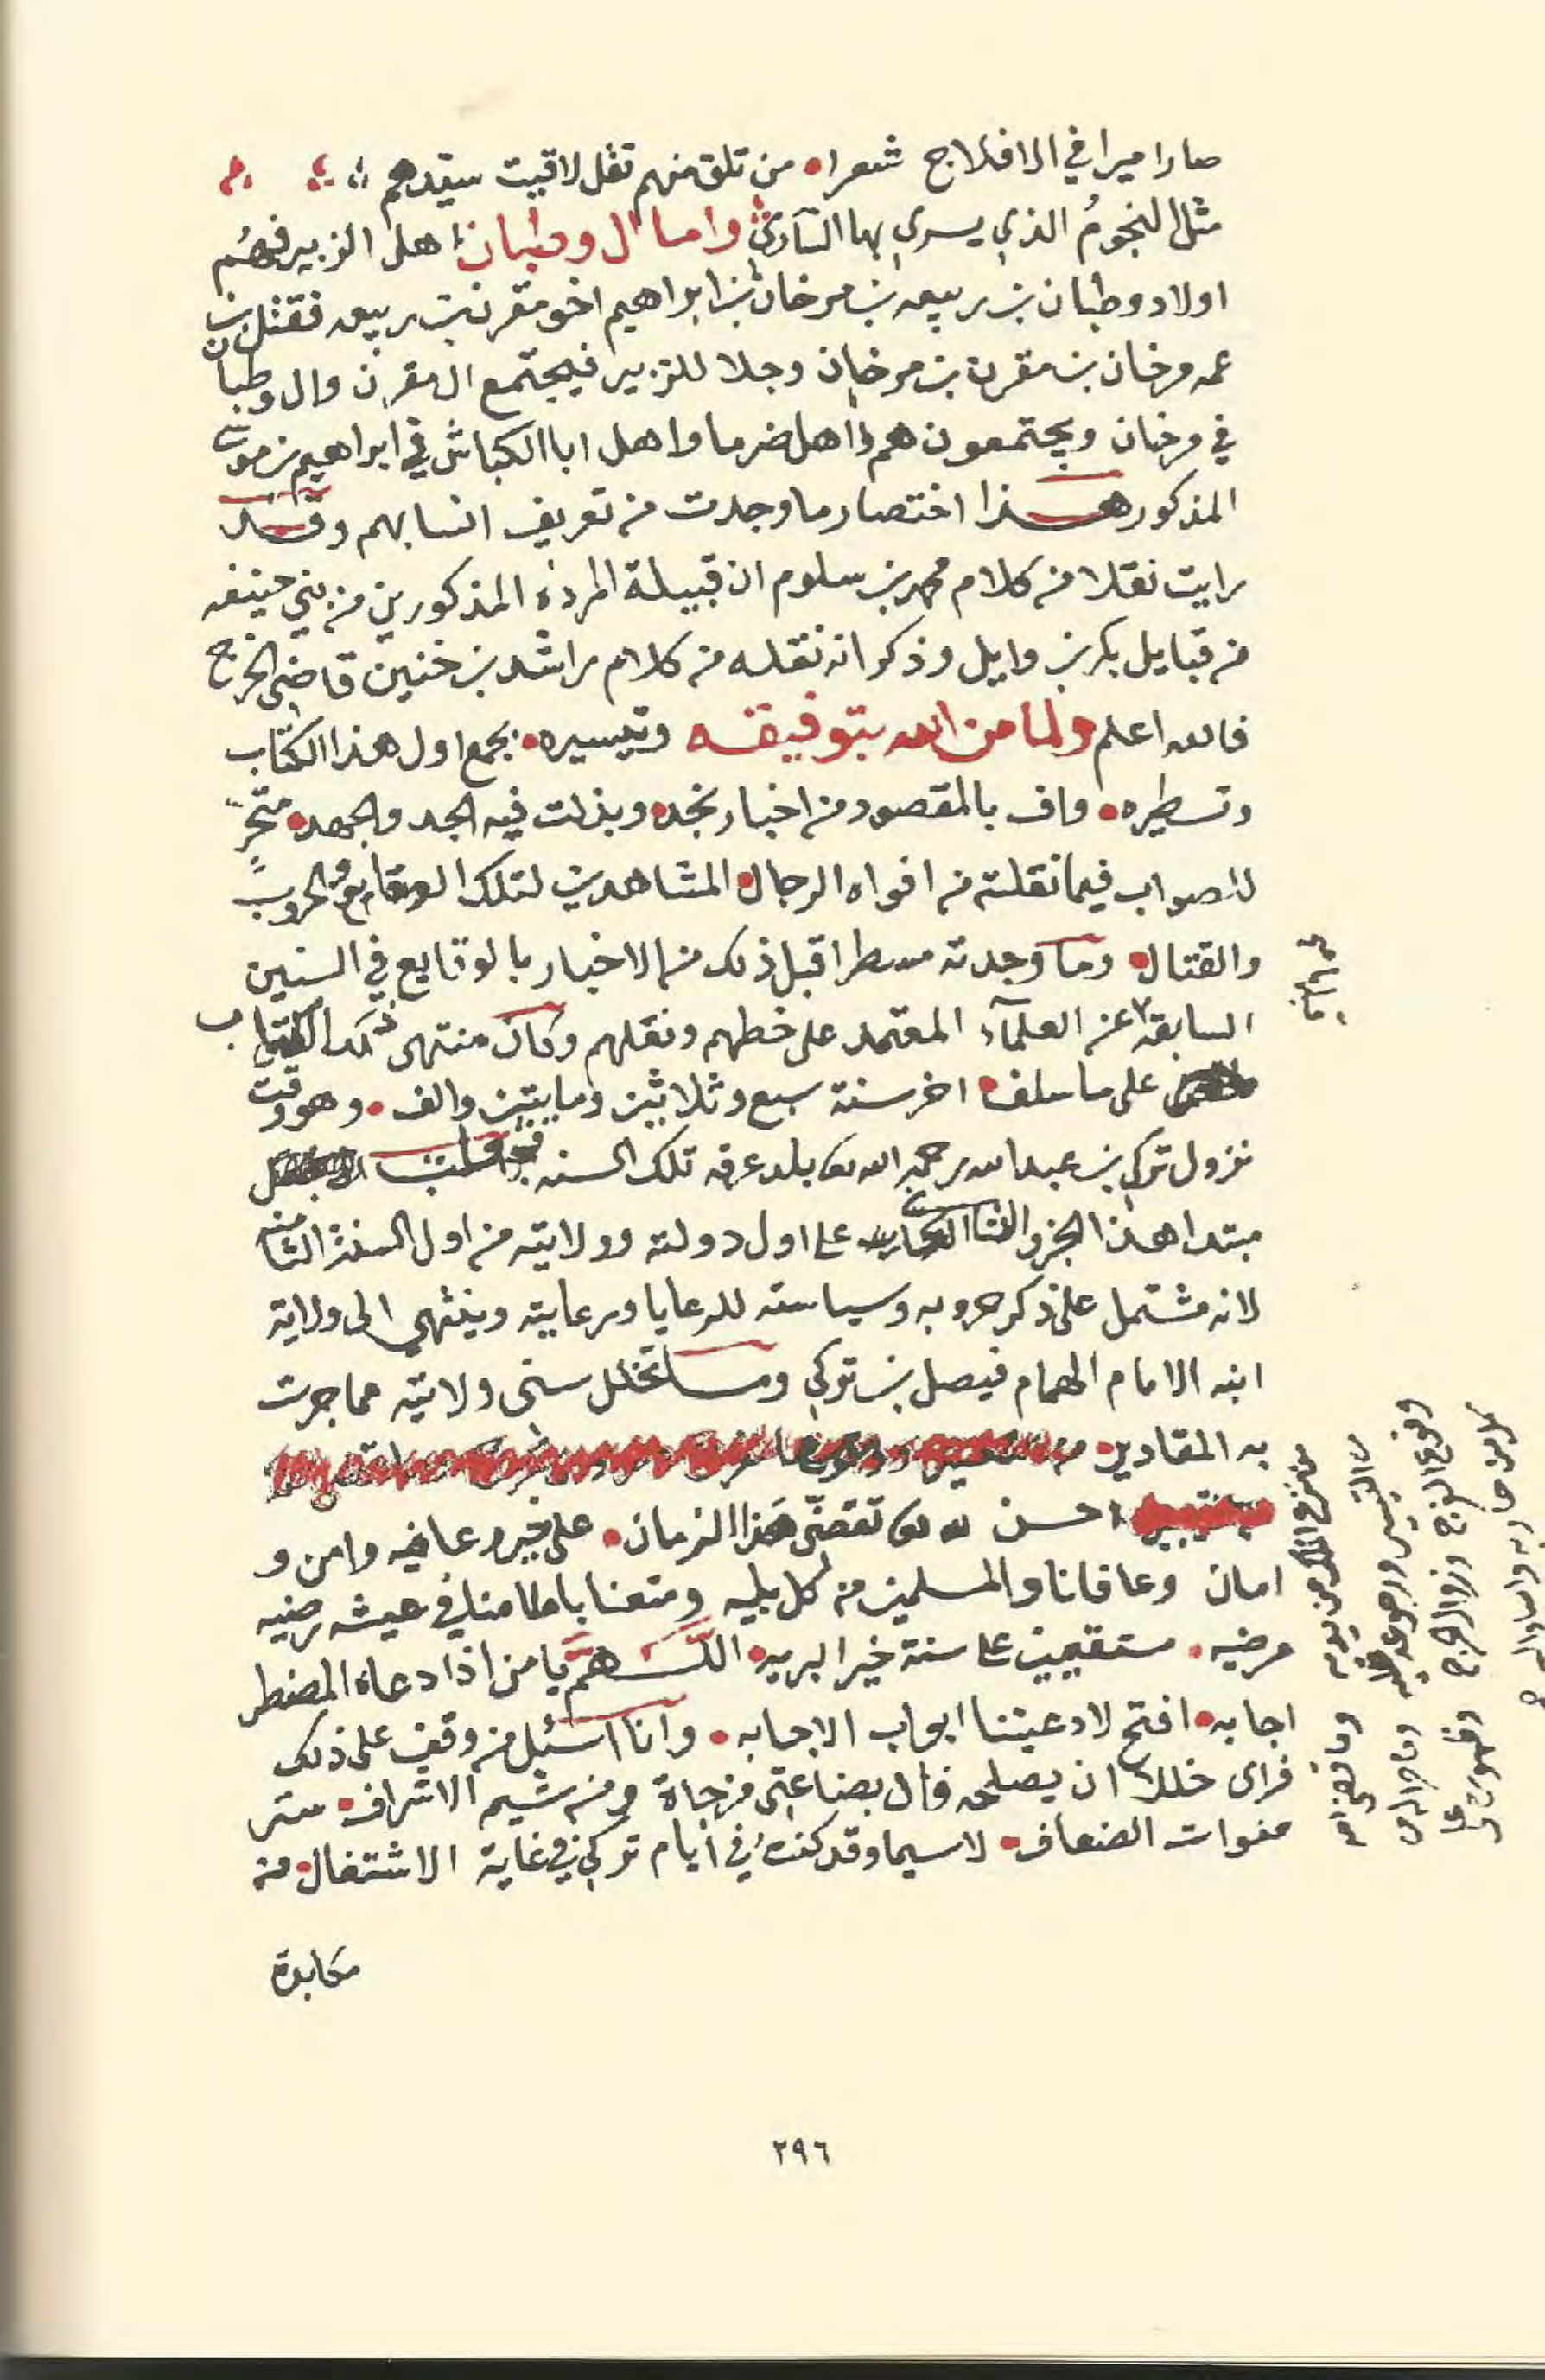 صار اميرا في الافلاج شعرا من تلق منهم تقل لاقيت سيدهم
مثل النجوم الذي يسري بها الساري واما ال وطبان اهل الزبير فهم
اولاد وطبان بن ربيعه بن مرخان بن ابراهيم اخو مقرن بن ربيعه فقتل بن
عمه مرخان بن مقرن بن مرخان وجلا للزبير فيجتمع ال مقرن وال وطبان
في مرخان ويجتمعون هم واهل ضرما واهل ابا الكباش في ابراهيم بن موسى
المذكور هذا اختصار ما وجدت من تعريف انسابهم وقد
رايت نقلا من كلام محمد بن سلوم ان قبيلة المرده المذكورين من بني حنيفه
من قبايل بكر بن وايل وذكر انه نقله من كلام راشد بن خنين قاضي الخرج
فالله اعلم ولما من الله بتوفيقه وتيسيره بجمع اول هذا الكتاب
وتسطيره واف بالمقصود من اخبار نجد وبذلت فيه الجد والجهد متحر
للصواب فيما نقلته من افواه الرجال المشاهدين لتلك الوقايع والحروب
والقتال وما وجدته مسطرا قبل ذلك من الاخبار بالوقايع في السنين
السابقة عن العلمآء المعتمد على خطهم ونقلهم وكان منتهى ذلك الكتاب
على ما سلف اخر سنة سبع وثلاثين ومايتين والف وهو وقت
نزول تركي بن عبدالله رحمه الله بلد عرقه تلك السنه فجعلت
مبتدا هذا الجزو الثاني على اول دولته وولايته من اول السنة الثامنه
لانه مشتمل على ذكر حروبه وسياسته للرعايا ورعايته وينتهي الى ولاية
ابنه الامام الهمام فيصل بن تركي وما تخلل سنى ولايته مما جرت
به المقادير من
احسن الله تقضي هذا الزمان على خير وعافيه وامن و
امان وعافانا والمسلمين من كل بليه ومتعنا بامامنا في عيشه رضيه
مرضيه مستقيمين على سنة خير البريه اللهم يا من اذا دعاه المضطر
اجابه افتح لادعيتنا ابواب الاجابه وانا اسئل من وقف على ذلك
فراى خللا ان يصلحه فان بضاعتي مزجاة ومن شيم الاشراف ستر
هفوات الضعاف لاسيما وقد كنت في ايام تركي في غاية الاشتغال من
مكابدة
٢٩٦